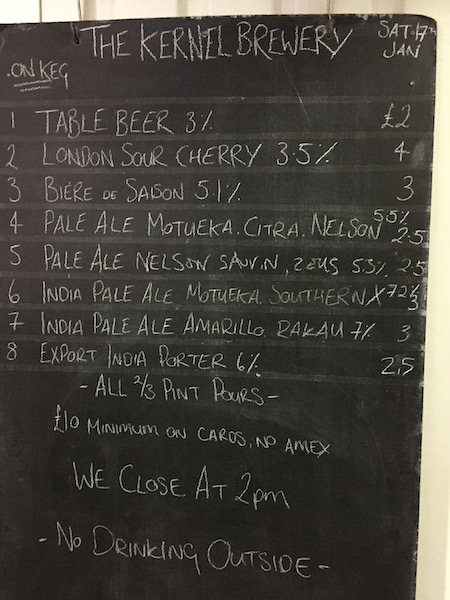 THE KERNEL BREWERY
SAT 17th
JAN
.ON KEG
1 TABLE BEER 3% £2
2 LONDON SOUR CHERRY 3.5% 4
3 BIÈRE DE SAISON 5.1% 3
4 PALE ALE MOTUEKA. CITRA. NELSON 5.5% 2.5
5 PALE ALE NELSON SAUVIN, ZEUS 5.3% 2.5
6 INDIA PALE ALE MOTUEKA. SOUTHERN X 7.2% 3
7 INDIA PALE ALE AMARILLO. RAKAU 7% 3
8 EXPORT INDIA PORTER 6% 2.5
- ALL 2/3 PINT POURS -
£10 MINIMUM ON CARDS, NO AMEX
WE CLOSE AT 2pm
- NO DRINKING OUTSIDE -